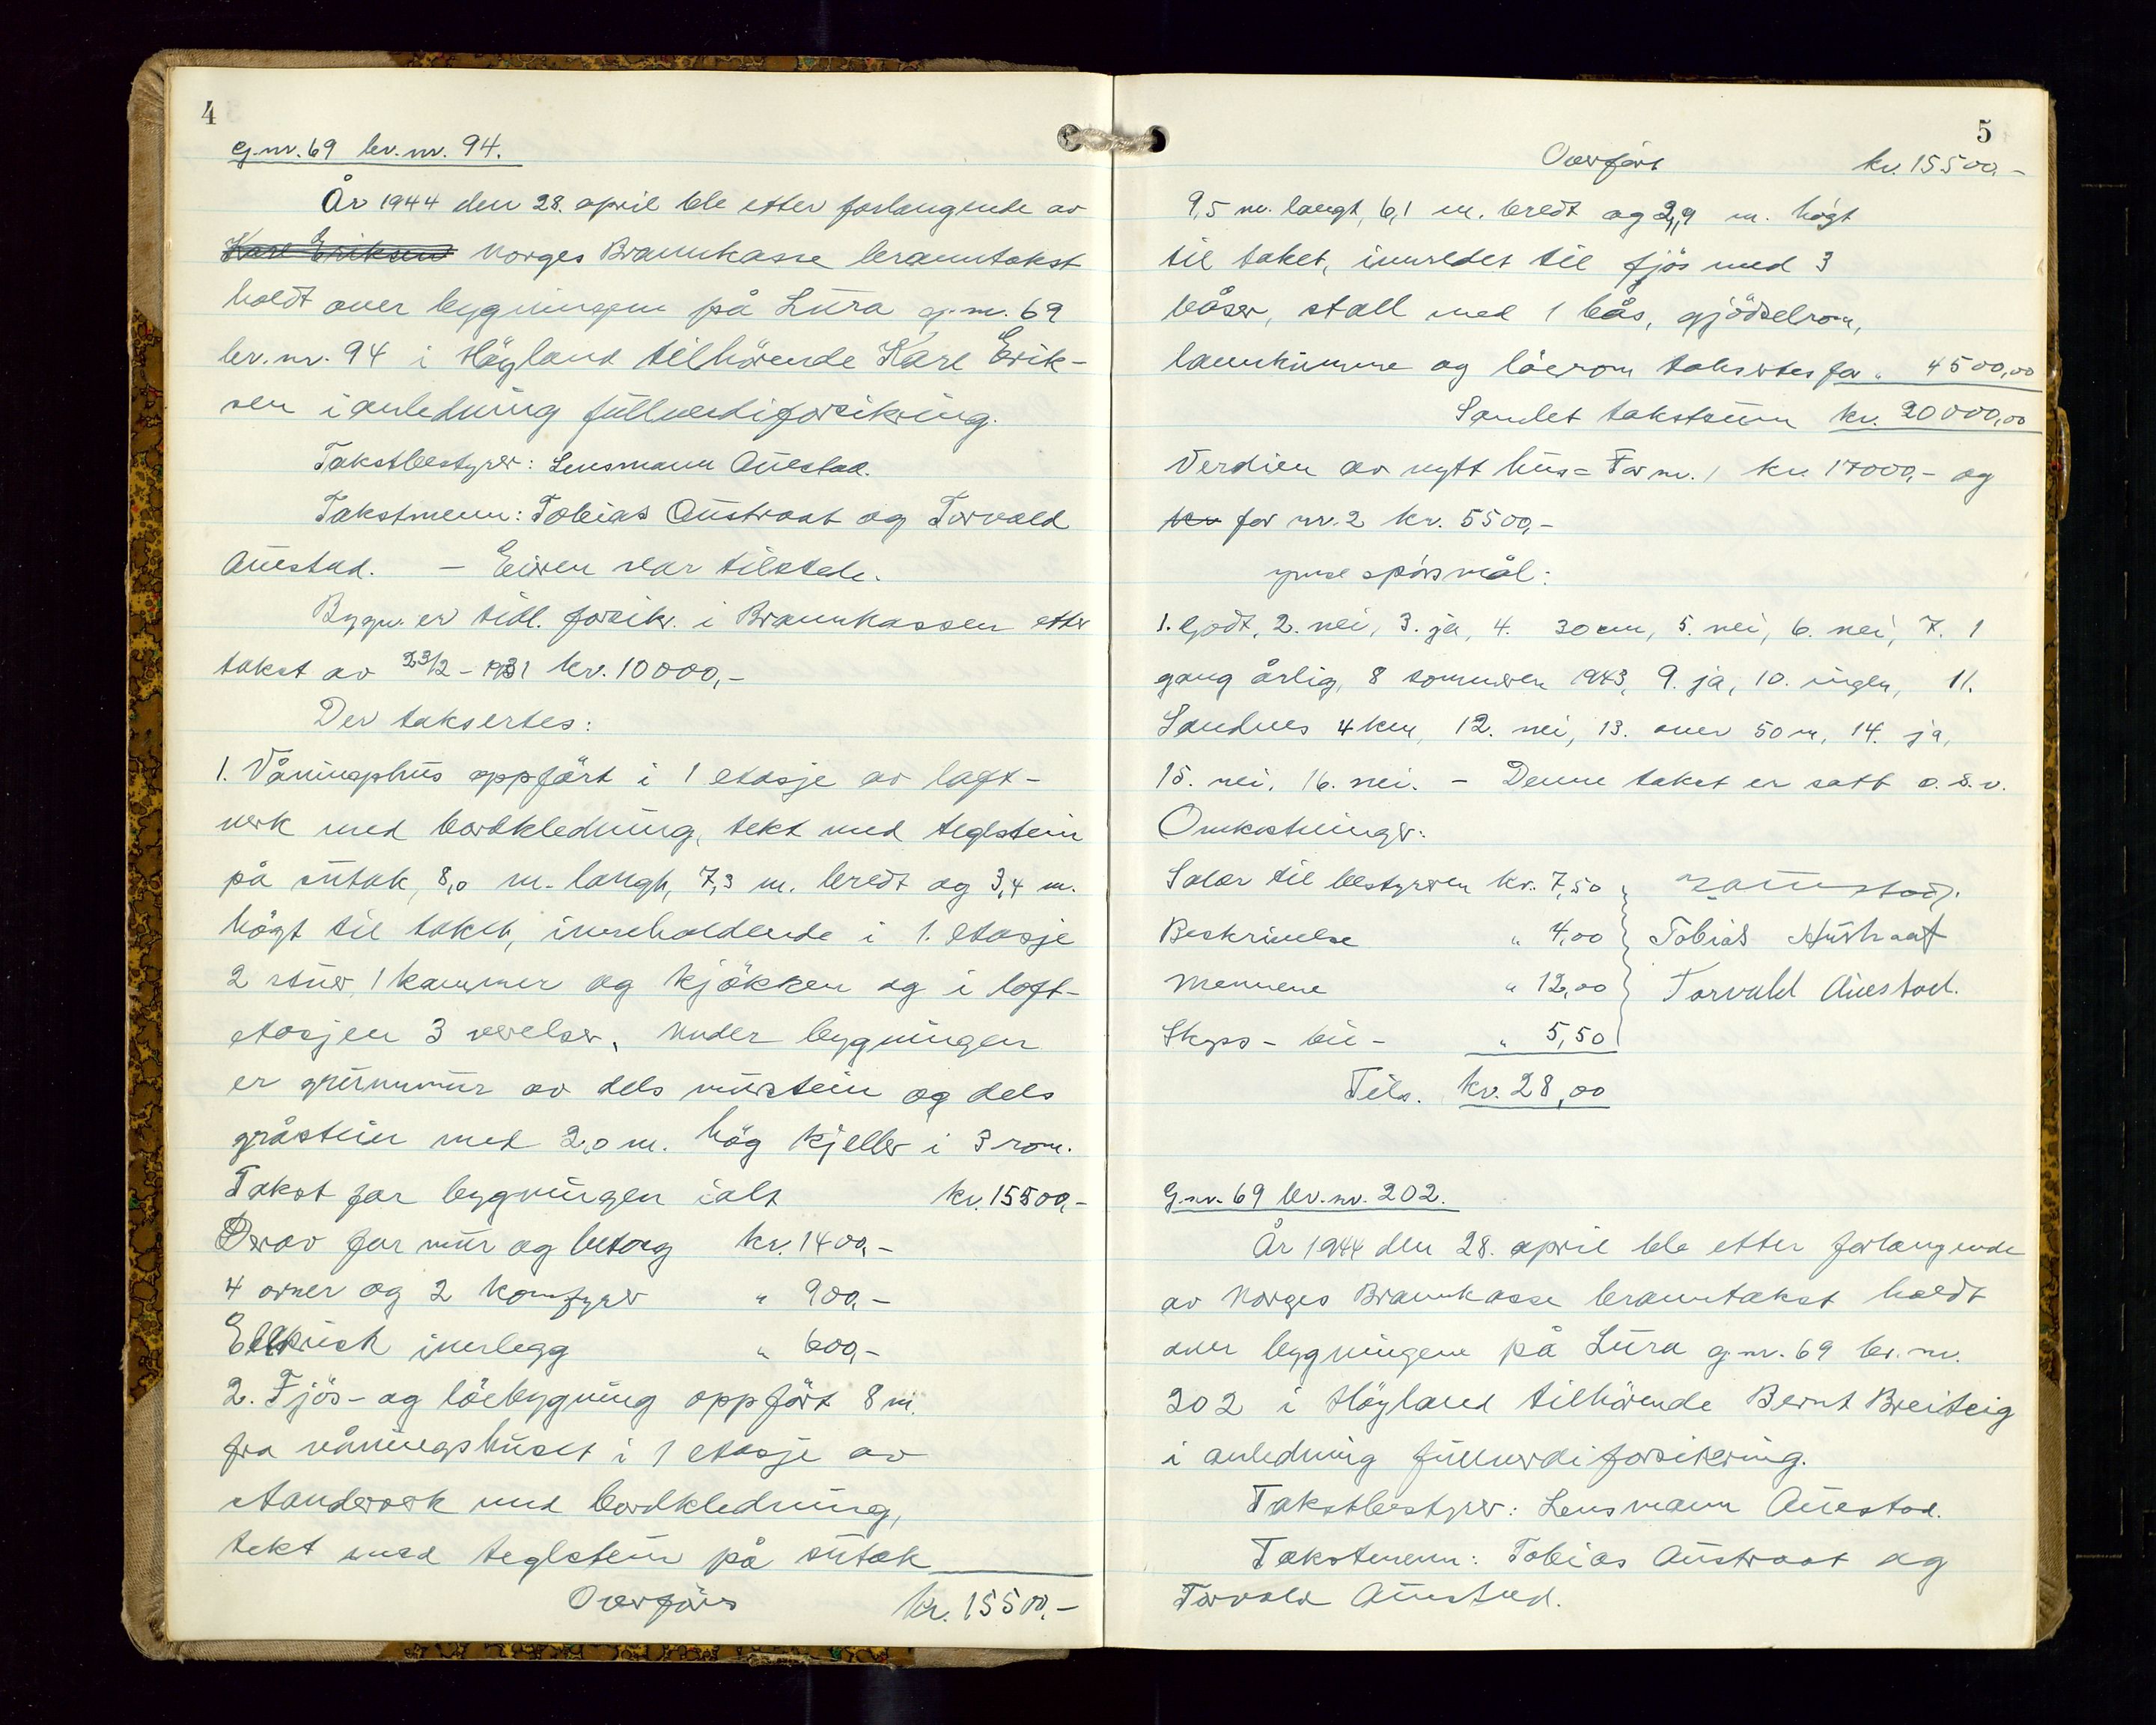 4
g.nr. 69 br.nr. 94.
År 1944 den 28. april ble etter forlangende av
Karl Eriksen Norges Brannkasse branntakst
holdt over bygningene på Lura g.nr. 69
br.nr. 94 i Høyland tilhørende Karl Erik-
sen i anledning fullverdiforsikring.
Takstbestyrer: Lensmann Auestad.
Takstmenn: Tobias Austraat og Torvald
Auestad. — Eieren var tilstede.
Bygn. er tidl. forsikr. i Brannkassen etter
takst av 23/2 - 1931 kr. 10000,-
Der taksertes:
1. Våningshus oppført i 1 etasje av laft-
verk med bordkledning, tekt med teglstein
på sutak, 8,0 m. langt, 7,3 m. bredt og 3,4 m.
høgt til taket, inneholdende i 1. etasje
2 stuer, 1 kammer og kjøkken og i loft-
etasjen 3 værelser. Under bygningen
er grunnmur av dels murstein og dels
gråstein med 2,0 m. høg kjeller i 3 rom.
Takst for bygningen ialt kr. 15500,-
Derav for mur og betong kr. 1400,-
4 ovner og 2 komfyrer " 900,-
Elektrisk innlegg " 600,-
2. Fjøs- og løebygning oppført 8 m.
fra våningshuset i 1 etasje av
standerverk med bordkledning,
tekt med teglstein på sutak
Overføres kr. 15500,-
5
Overført kr. 15500,-
9,5 m. langt, 6,1 m. bredt og 2,9 m. høgt
til taket, innredet til fjøs med 3
båser, stall med 1 bås, gjødselrom,
lannkumme og løerom taksertes for " 4500,00
Samlet takstsum kr. 20000,00
Verdien av nytt hus = For nr. 1 kr. 17000,- og
kr for nr. 2 kr. 5500,-
ymse spørsmål:
1. godt, 2. nei, 3. ja, 4. 30 cm, 5. nei, 6. nei, 7. 1
gang årlig, 8 sommeren 1943, 9. ja, 10. ingen, 11.
Sandnes 4 km, 12. nei, 13. over 50 m, 14. ja,
15. nei, 16. nei. — Denne takst er satt o.s.v.
Omkostninger:
Salær til bestyreren kr. 7,50 Auestad.
Beskrivelse " 4,00 Tobias Austraat
Mennene " 12,00 Torvald Auestad.
Skyss - bil - " 5,50
Tils. kr. 28,00
G.nr. 69 br.nr. 202.
År 1944 den 28. april ble etter forlangende
av Norges Brannkasse branntakst holdt
over bygningene på Lura g.nr. 69 br.nr.
202 i Høyland tilhørende Bernt Breiteig
i anledning fullverdiforsikring.
Takstbestyrer: Lensmann Auestad.
Takstmenn: Tobias Austraat og
Torvald Auestad.